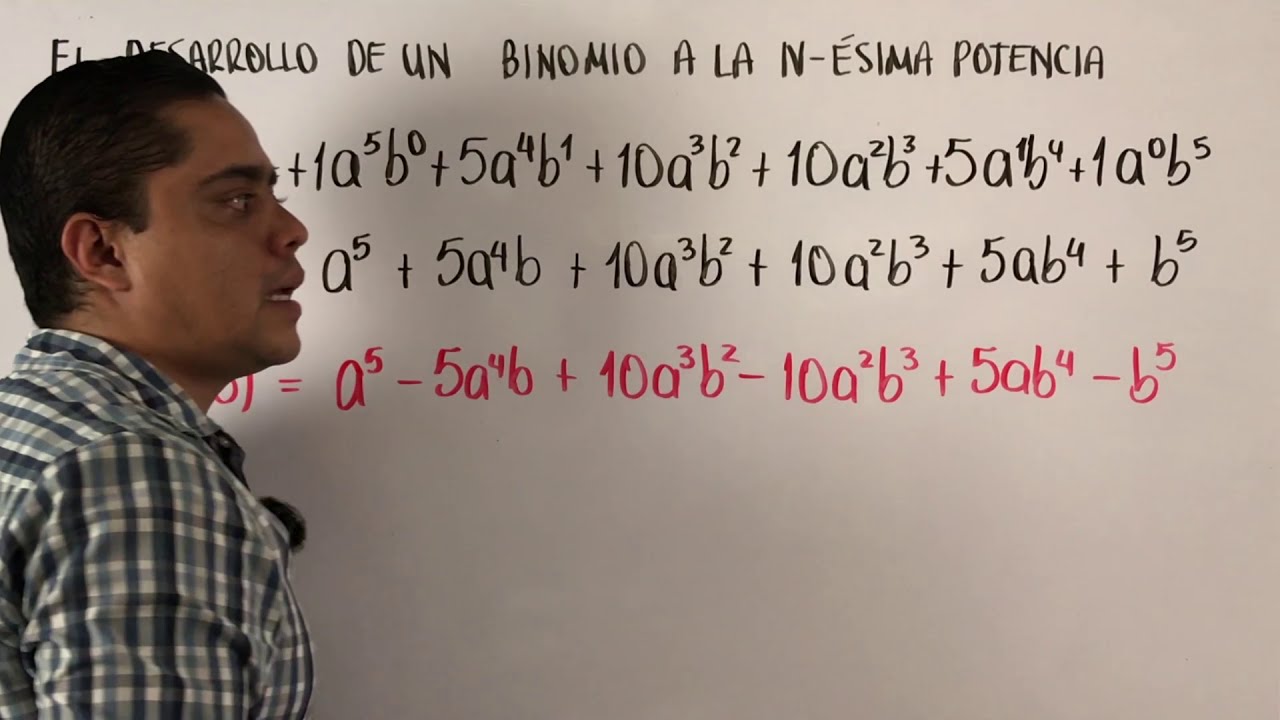 EL DESARROLLO DE UN BINOMIO A LA N-ÉSIMA POTENCIA
+1a⁵b⁰+5a⁴b¹+10a³b²+10a²b³+5a¹b⁴+1a⁰b⁵
a⁵ + 5a⁴b + 10a³b² + 10a²b³ + 5ab⁴ + b⁵
b) = a⁵ - 5a⁴b + 10a³b² - 10a²b³ + 5ab⁴ - b⁵